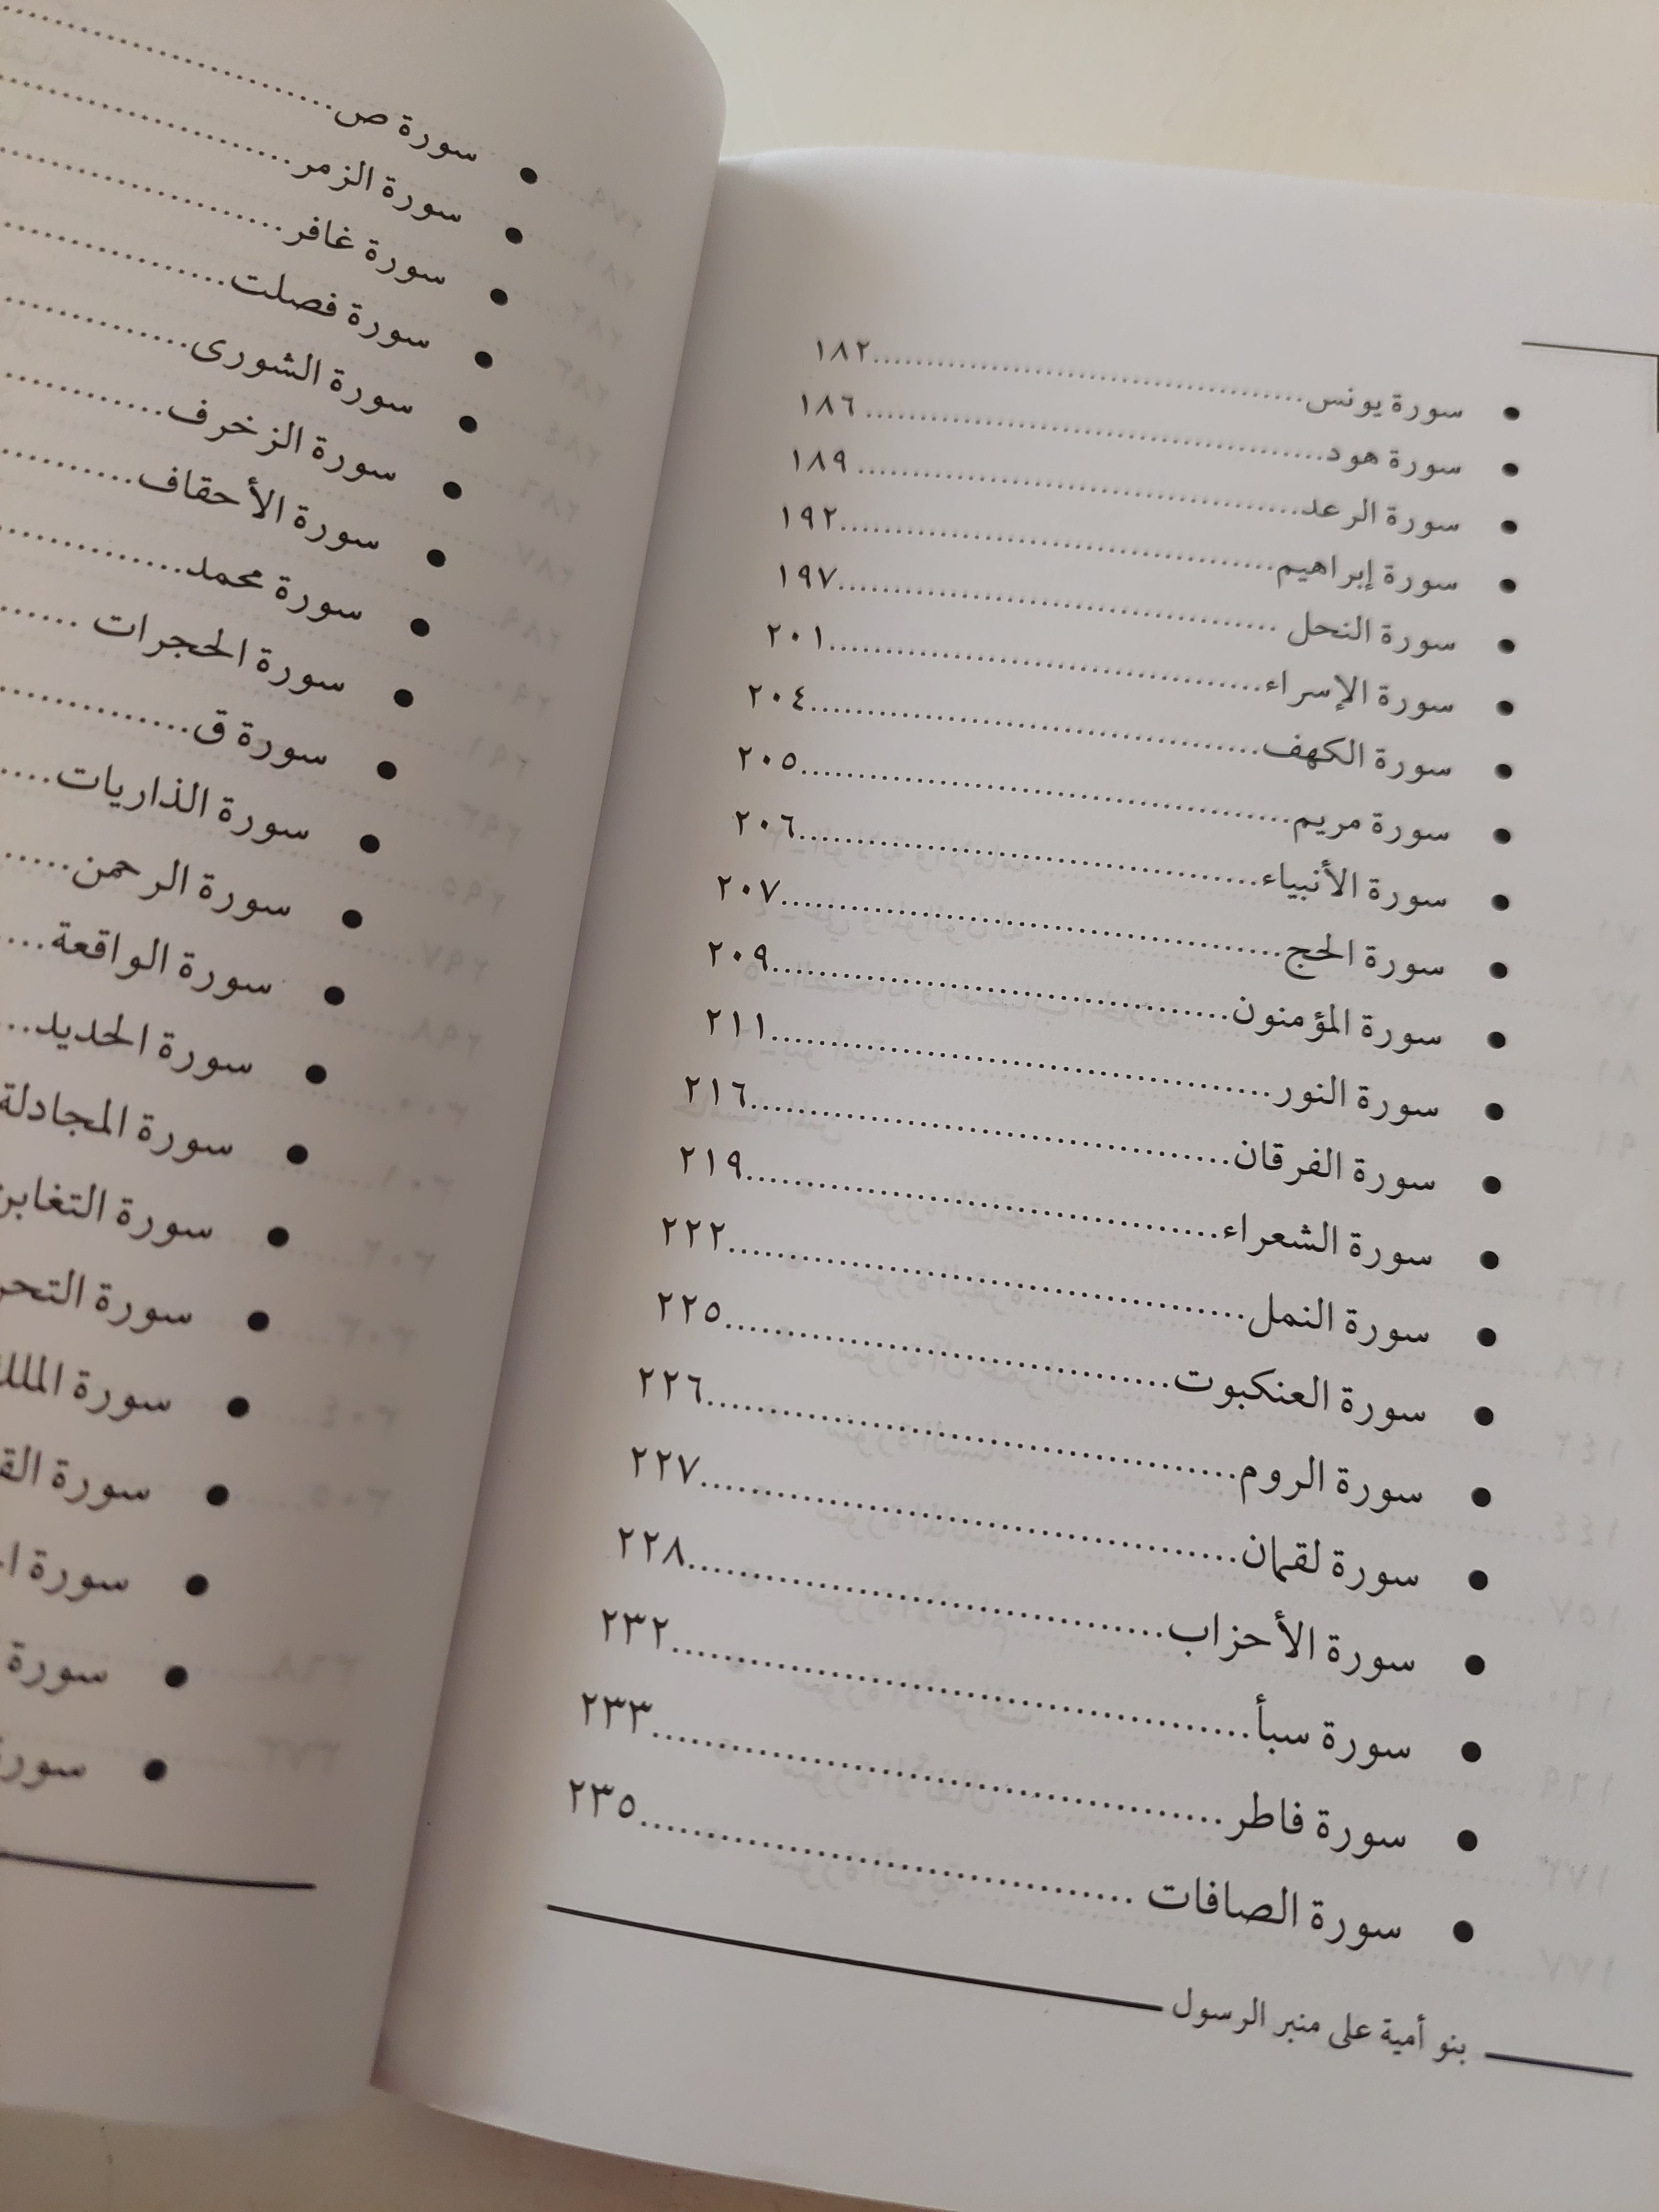 سورة يونس..........١٨٢
سورة هود..........١٨٦
سورة الرعد..........١٨٩
سورة إبراهيم..........١٩٢
سورة النحل..........١٩٧
سورة الإسراء..........٢٠١
سورة الكهف..........٢٠٤
سورة مريم..........٢٠٥
سورة الأنبياء..........٢٠٦
سورة الحج..........٢٠٧
سورة المؤمنون..........٢٠٩
سورة النور..........٢١١
سورة الفرقان..........٢١٦
سورة الشعراء..........٢١٩
سورة النمل..........٢٢٢
سورة العنكبوت..........٢٢٥
سورة الروم..........٢٢٦
سورة لقمان..........٢٢٧
سورة الأحزاب..........٢٢٨
سورة سبأ..........٢٣٢
سورة فاطر..........٢٣٣
سورة الصافات..........٢٣٥
بنو أمية على منبر الرسول
سورة ص..........
سورة الزمر..........
سورة غافر..........
سورة فصلت..........
سورة الشورى..........
سورة الزخرف..........
سورة الأحقاف..........
سورة محمد..........
سورة الحجرات..........
سورة ق..........
سورة الذاريات..........
سورة الرحمن..........
سورة الواقعة..........
سورة الحديد..........
سورة المجادلة
سورة التغابن
سورة
سورة الملك
سورة
سورة
سورة
سورة